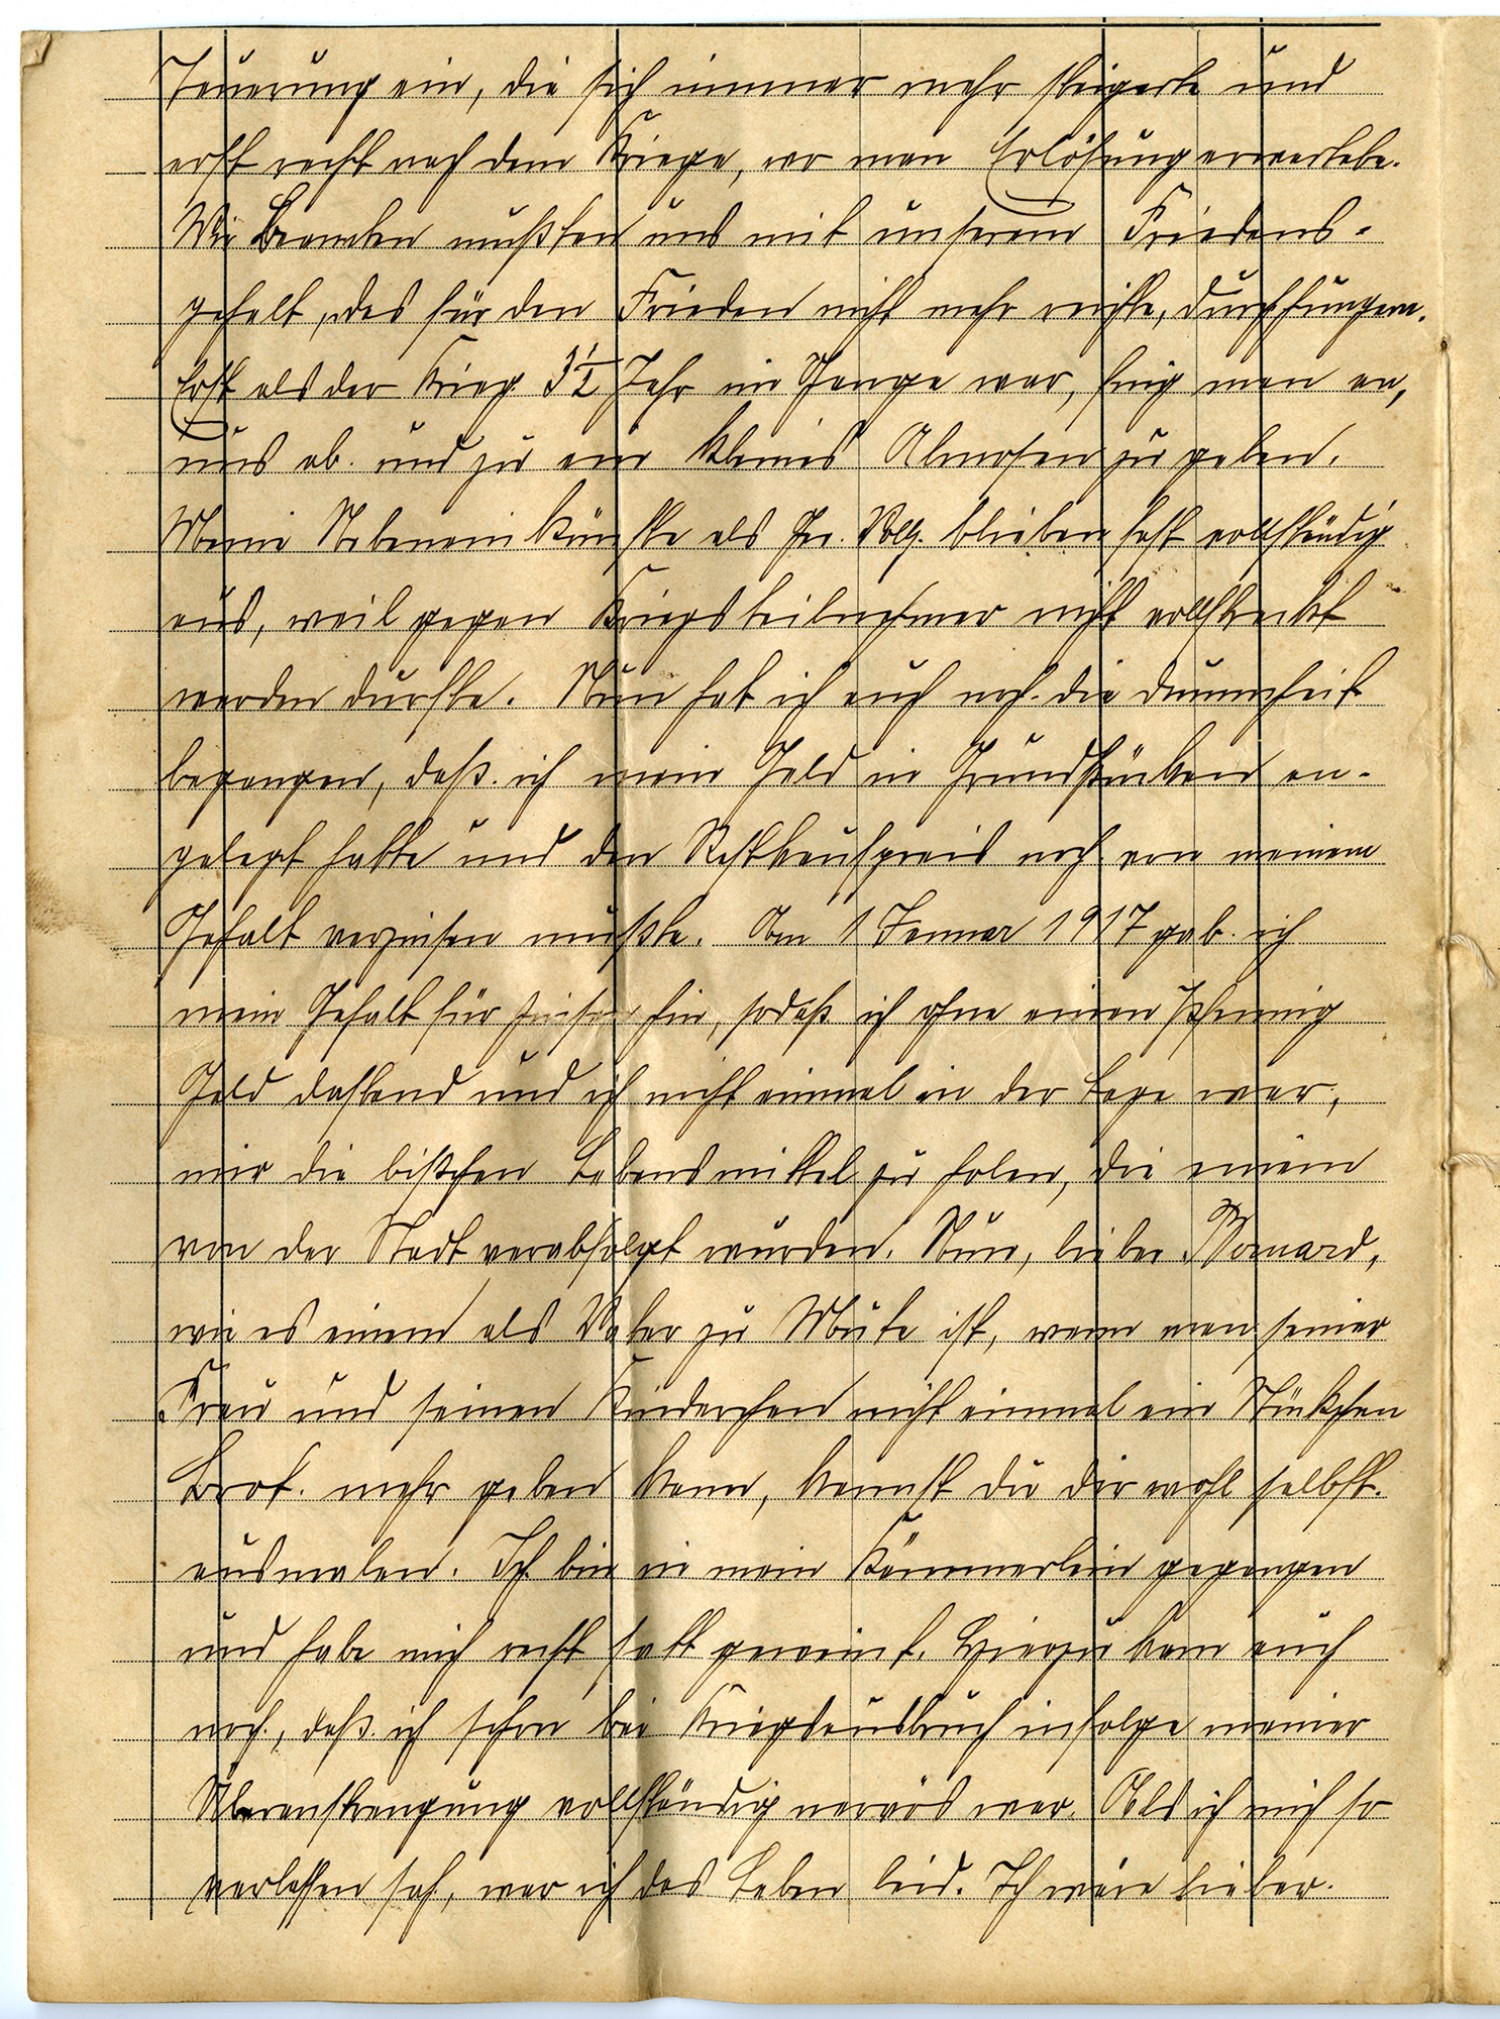 Teuerung ein, die sich immer mehr steigerte und
erst recht nach dem Kriege, wo man Erlösung erwartete.
Wir Beamten mußten uns mit unserem Friedens-
gehalt, das für den Frieden nicht mehr reichte, durchhungern.
Erst als der Krieg 3½ Jahr im Gange war, fing man an,
uns ab und zu ein kleines Almosen zu geben.
Meine Nebeneinkünfte als Ger. Vollz. blieben fast vollständig
aus, weil gegen Kriegsteilnehmer nicht vollstreckt
werden durfte. Nun hat ich auch noch die Dummheit
begangen, daß ich mein Geld in Grundstücken an-
gelegt hatte und den Restkaufpreis noch von meinem
Gehalt verzinsen mußte. Am 1 Januar 1917 gab ich
mein Gehalt für Zinsen hin, sodaß ich ohne einen Pfennig
Geld dastand und ich nicht einmal in der Lage war,
mir die bißchen Lebensmittel zu holen, die einem
von der Stadt verabfolgt wurden. Nun, lieber
wie es einem als Vater zu Mute ist, wenn man seiner
Frau und seinen Kinderchen nicht einmal ein Stückchen
Brot mehr geben kann, kannst du dir wohl selbst
ausmalen. Ich bin in mein Kämmerlein gegangen
und habe mich recht satt geweint. Hierzu kam auch
noch, daß ich schon bei Kriegsausbruch infolge meiner
Überanstrengung vollständig nervös war. Als ich mich so
verlassen sah, war ich das Leben leid. Ich wäre lieber